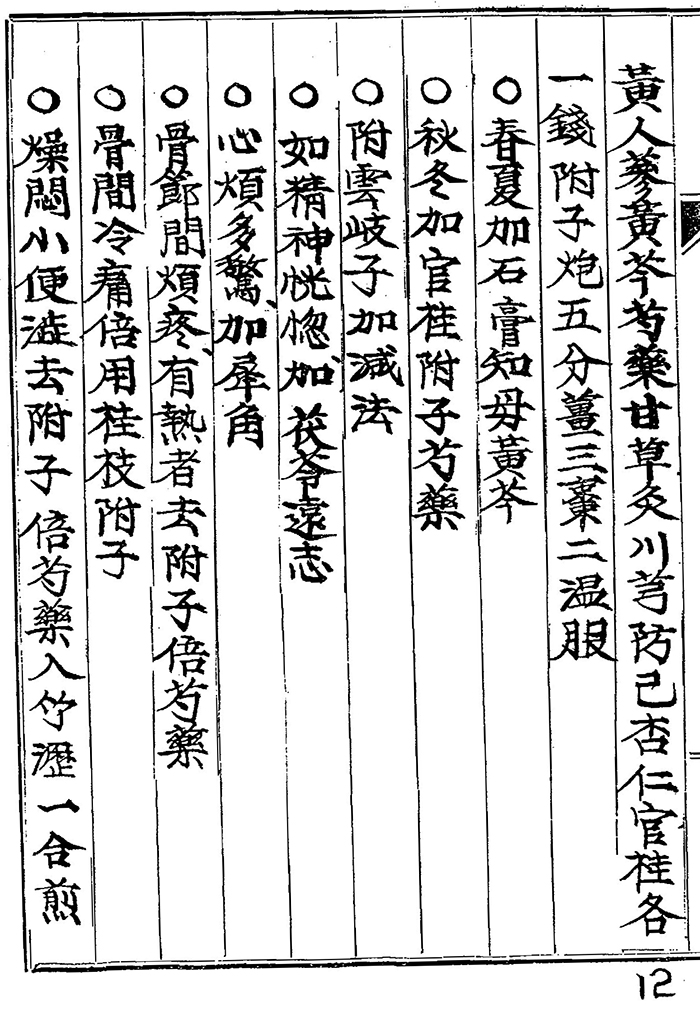 黃人蔘黃芩芍藥甘草灸川芎防己杏仁官桂各
一錢附子炮五分薑三棗二温服
○春夏加石膏知母黃芩
○秋冬加官桂附子芍藥
○附雲岐子加減法
○如精神恍惚加茯苓遠志
○心煩多驚加犀角
○骨節間煩疼有熱者去附子倍芍藥
○骨間冷痛倍用桂枝附子
○燥悶小便澁去附子倍芍藥入竹瀝一合煎
12